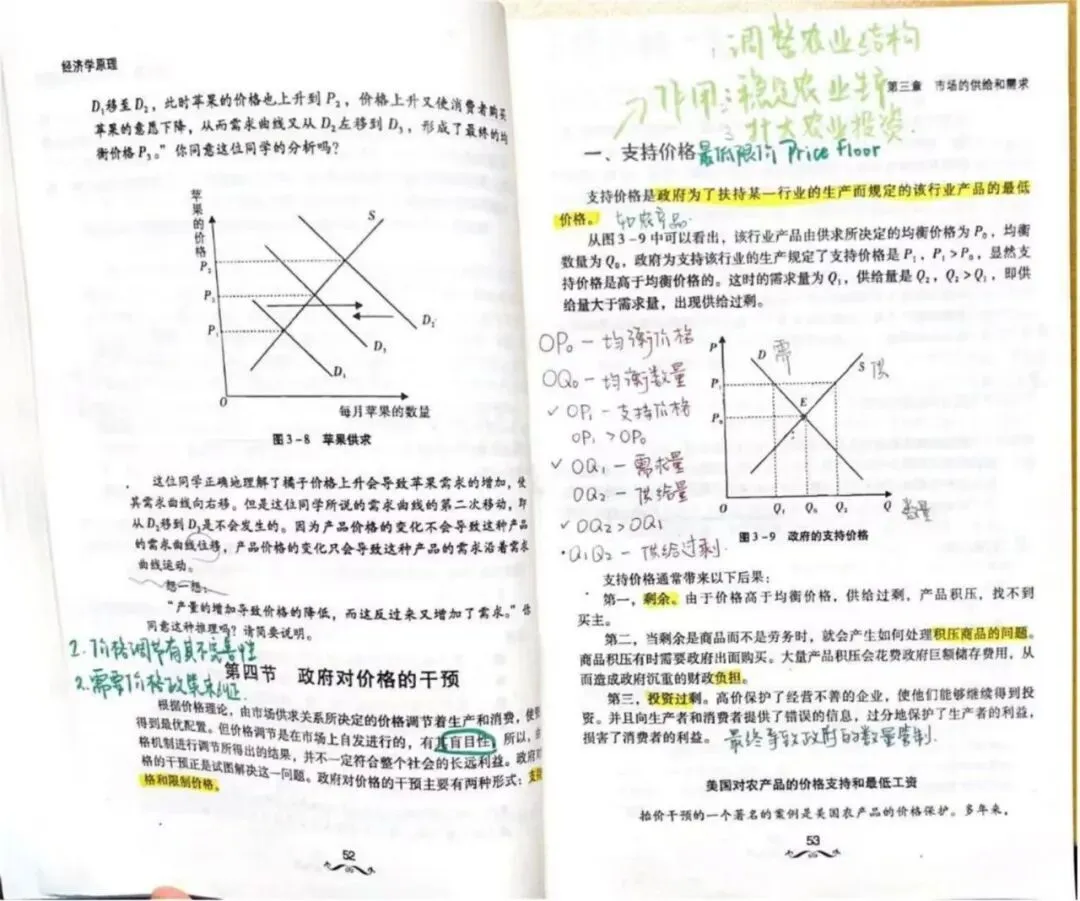 经济学原理
D₁移至D₂，此时苹果的价格也上升到P₂，价格上升又使消费者购买
苹果的意愿下降，从而需求曲线又从D₂左移到D₃，形成了最终的均
衡价格P₃。”你同意这位同学的分析吗？
苹果的价格
S
P₂
P₃
P₁
D₂
D₃
D₁
O
每月苹果的数量
图3-8 苹果供求
这位同学正确地理解了橘子价格上升会导致苹果需求的增加，使
其需求曲线向右移。但是这位同学所说的需求曲线的第二次移动，即
从D₂移到D₃是不会发生的。因为产品价格的变化不会导致这种产品
的需求曲线位移，产品价格的变化只会导致这种产品的需求沿着需求
曲线运动。
想一想：
“产量的增加导致价格的降低，而这反过来又增加了需求。”你
同意这种推理吗？请简要说明。
1. 价格调节有其不完善性
2. 需要价格政策来
第四节 政府对价格的干预
根据价格理论，由市场供求关系所决定的价格调节着生产和消费，使
得到最优配置。但价格调节是在市场上自发进行的，有其盲目性，所以，由
格机制进行调节所得出的结果，并不一定符合整个社会的长远利益。政府对
格的干预正是试图解决这一问题。政府对价格的干预主要有两种形式：支持
格和限制价格。
52
调整农业结构
作用：稳定农业生产
3 壮大农业投资.
第三章 市场的供给和需求
一、支持价格 最低限价 Price floor
支持价格是政府为了扶持某一行业的生产而规定的该行业产品的最低
价格。 如农产品.
从图3-9中可以看出，该行业产品由供求所决定的均衡价格为P₀，均衡
数量为Q₀，政府为支持该行业的生产规定了支持价格是P₁，P₁>P₀，显然支
持价格是高于均衡价格的。这时的需求量为Q₁，供给量是Q₂，Q₂>Q₁，即供
给量大于需求量，出现供给过剩。
OP₀ — 均衡价格
OQ₀ — 均衡数量
✓ OP₁ — 支持价格
OP₁ > OP₀
✓ OQ₁ — 需求量
OQ₂ — 供给量
✓ OQ₂ > OQ₁
· Q₁Q₂ — 供给过剩.
P
D 需
S 供
P₁
E
P₀
O Q₁ Q₀ Q₂ Q 数量
图3-9 政府的支持价格
支持价格通常带来以下后果：
第一，剩余。由于价格高于均衡价格，供给过剩，产品积压，找不到
买主。
第二，当剩余是商品而不是劳务时，就会产生如何处理积压商品的问题。
商品积压有时需要政府出面购买。大量产品积压会花费政府巨额储存费用，从
而造成政府沉重的财政负担。
第三，投资过剩。高价保护了经营不善的企业，使他们能够继续得到投
资。并且向生产者和消费者提供了错误的信息，过分地保护了生产者的利益，
损害了消费者的利益。 最终导致政府的数量管制.
美国对农产品的价格支持和最低工资
抬价干预的一个著名的案例是美国农产品的价格保护。多年来，
53